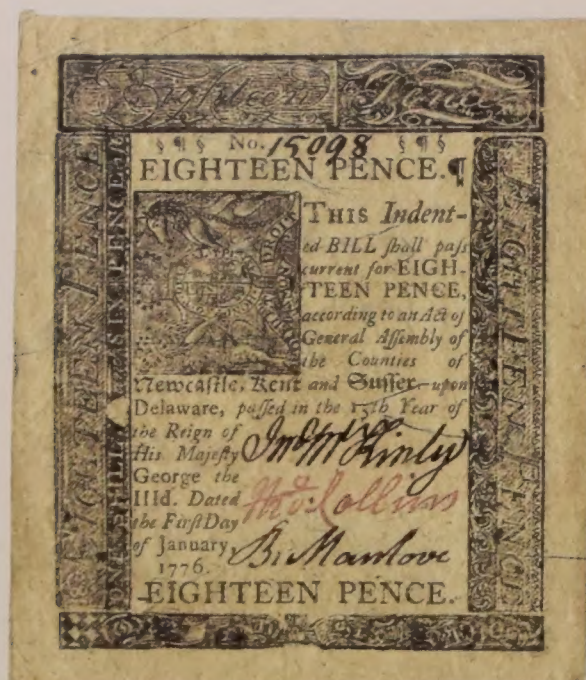 Eighteen Pence
§ ¶ § No. 15098 § ¶ §
EIGHTEEN PENCE.¶
THIS Indent-
ed BILL ſhall paſs
current for EIGH-
TEEN PENCE,
according to an Act of
General Aſſembly of
the Counties of
Newcaſtle, Kent and Suſſex, upon
Delaware, paſſed in the 15th Year of
the Reign of
His Majeſty
George the
IIId. Dated
the Firſt Day
of January,
1776.
Jno. McKinly
Thos. Collins
B. Manlove
EIGHTEEN PENCE.
EIGHTEEN PENCE
ONE SHILLING & SIX PENCE
EIGHTEEN PENCE